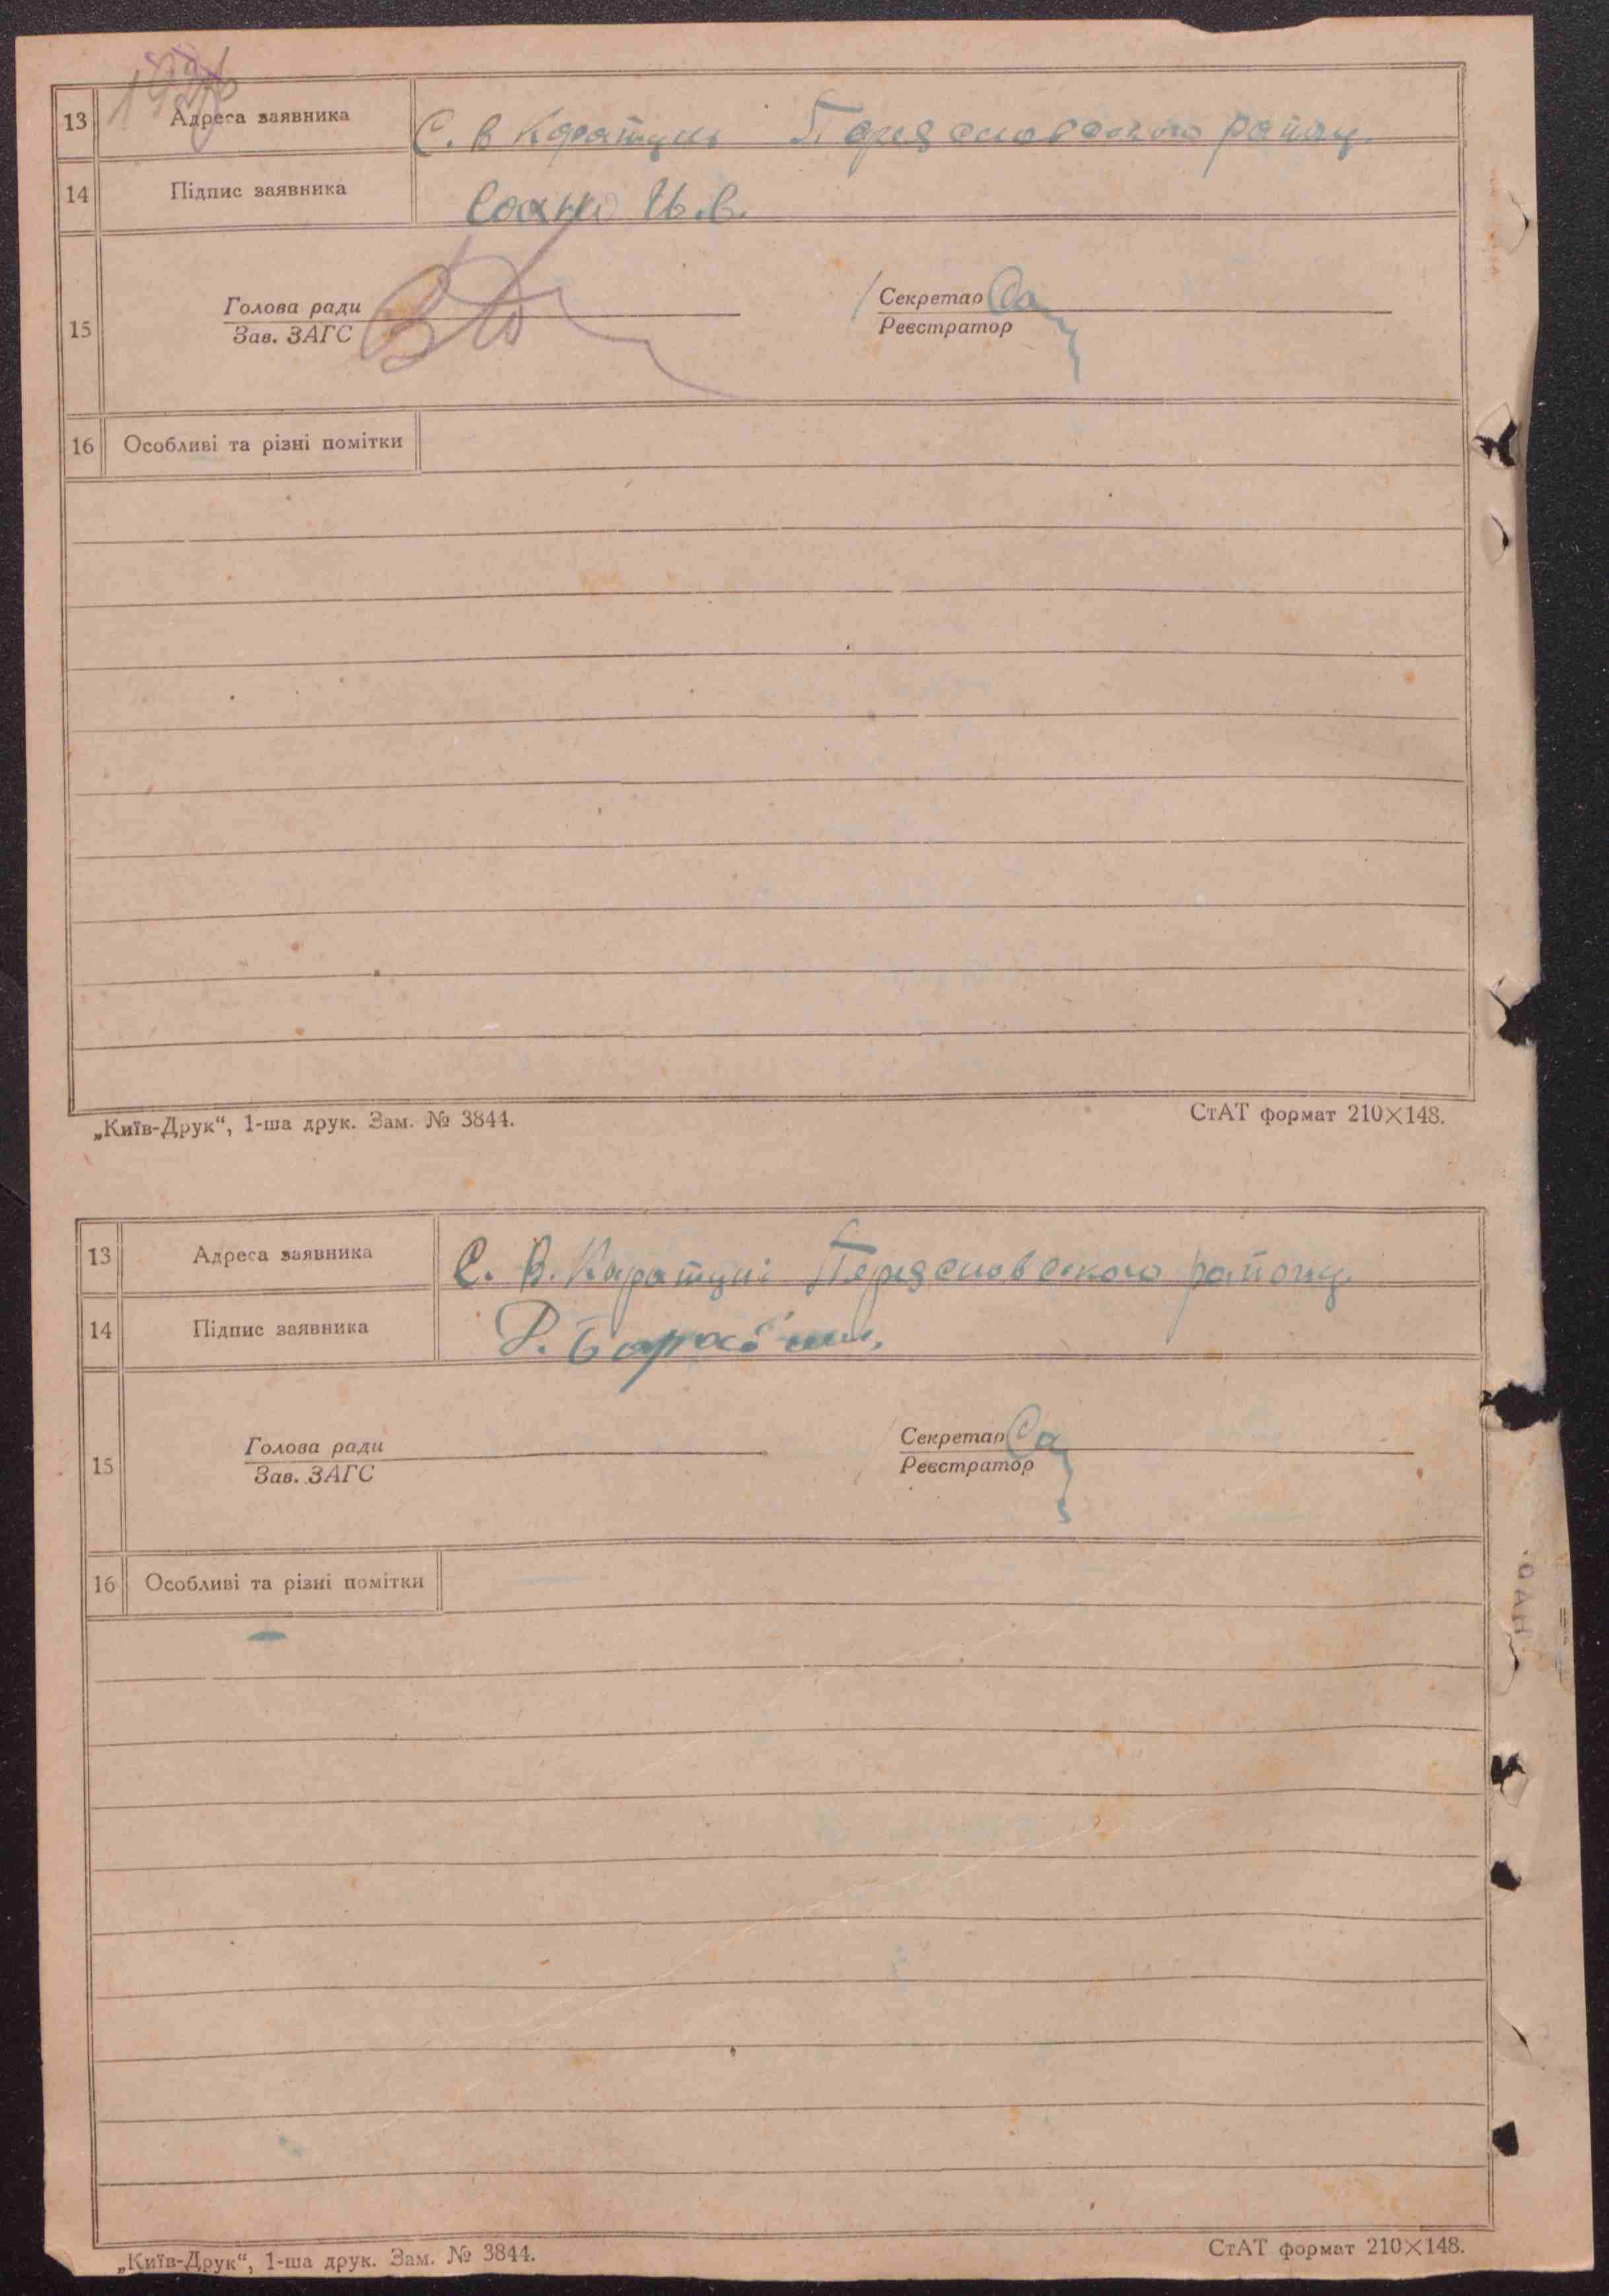 13 Адреса заявника С. В Каратуль Переяславського району
14 Підпис заявника Сахно
15 Голова ради Секретар
Зав. ЗАГС Реєстратор
16 Особливі та різні помітки
„Київ-Друк“, 1-ша друк. Зам. № 3844. СтАТ формат 210×148.
13 Адреса заявника С. В. Каратулі Переясловского району
14 Підпис заявника Р.
15 Голова ради Секретар
Зав. ЗАГС Реєстратор
16 Особливі та різні помітки
„Київ-Друк“, 1-ша друк. Зам. № 3844. СтАТ формат 210×148.